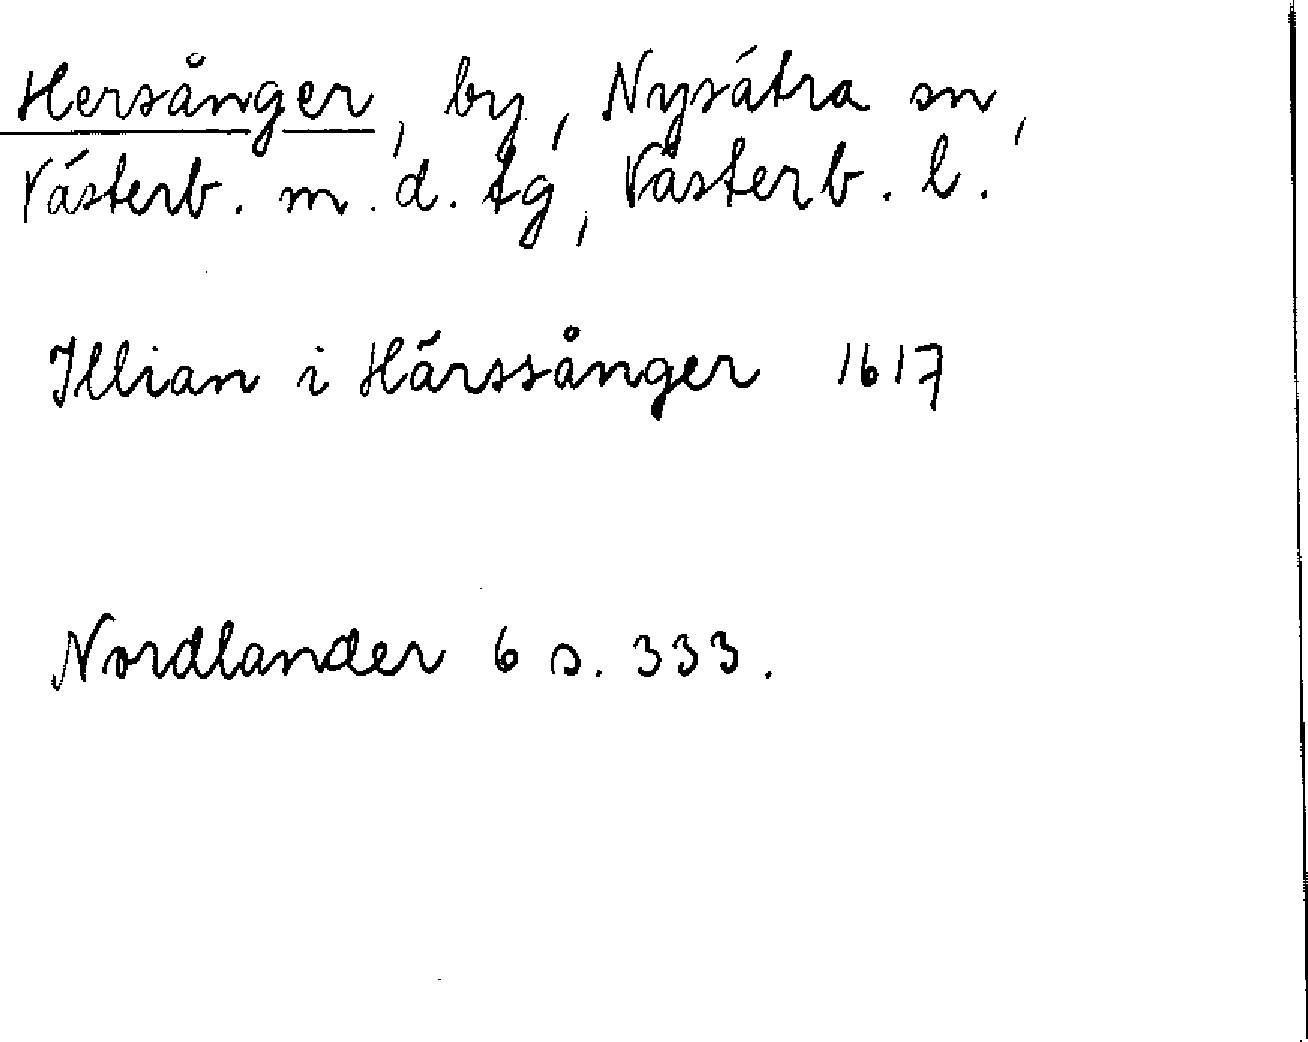 Hersånger, by, Nysätra sn,
Västerb. m. d. tg, Västerb. l.
Illian i Härssånger 1617
Nordlander 6 s. 333.